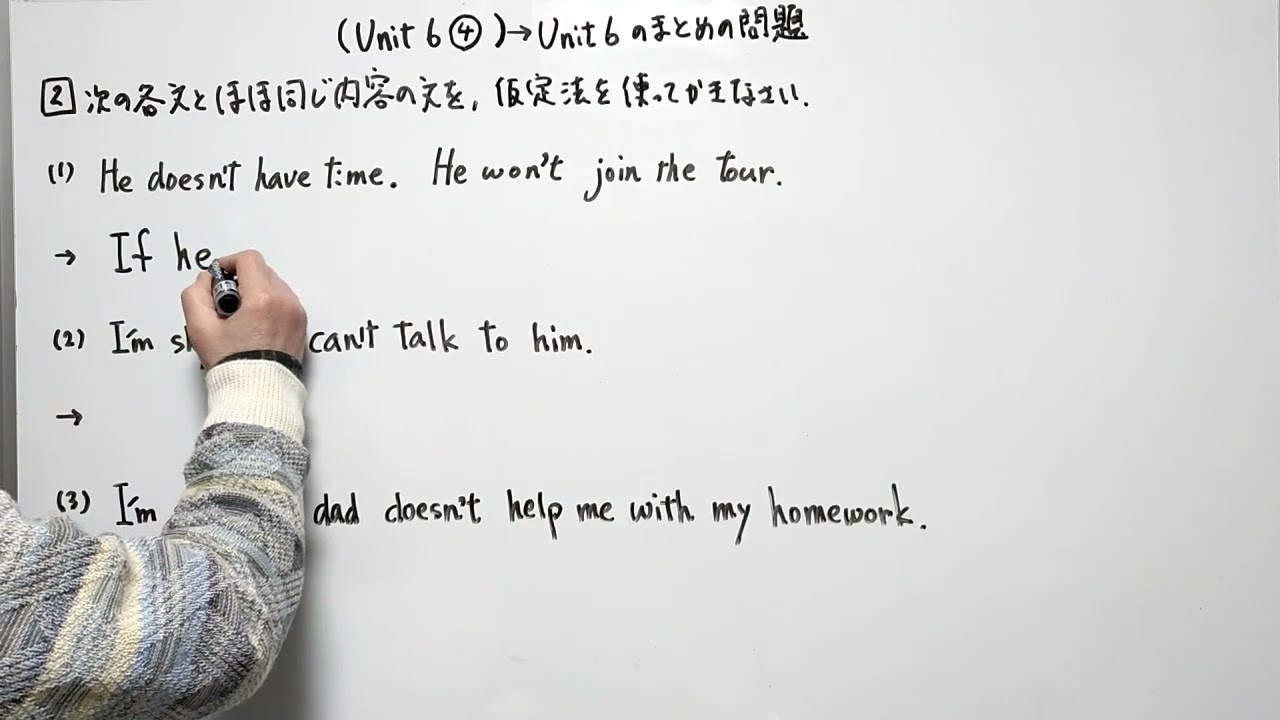 (Unit 6 ④)→Unit 6 のまとめの問題
2 次の各文とほぼ同じ内容の文を, 仮定法を使ってかきなさい.
(1) He doesn't have time. He won't join the tour.
→ If he
(2) I'm can't talk to him.
→
(3) I'm dad doesn't help me with my homework.